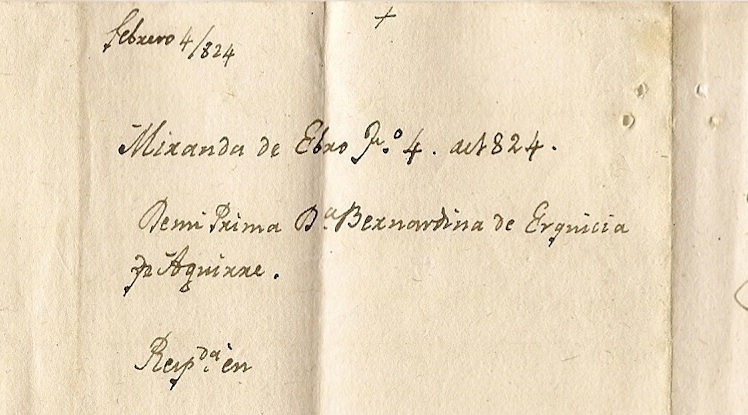 +
febrero 4/824
Miranda de Ebro Fº. 4. de 1824.
De mi Prima Dª. Bernardina de Erquicia
de Aguirre.
Respda. en